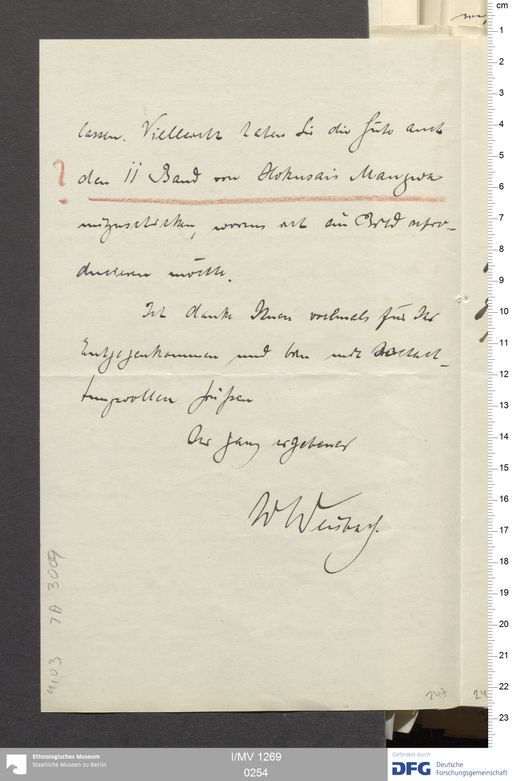 lassen. Vielleicht haben Sie die Güte auch
? den II Band von Hokusais Mangwa
mitzuschicken, woraus ich ein Bild repro-
ducieren möchte.
Ich danke Ihnen vielmals für Ihr
Entgegenkommen und bin mit hochach-
tungsvollen Grüßen
Ihr ganz ergebener
W Weisbach.
4103 7A 3009
247
24
cm
1
2
3
4
5
6
7
8
9
10
11
12
13
14
15
16
17
18
19
20
21
22
23
Ethnologisches Museum
Staatliche Museen zu Berlin
I/MV 1269
0254
Gefördert durch
DFG Deutsche
Forschungsgemeinschaft